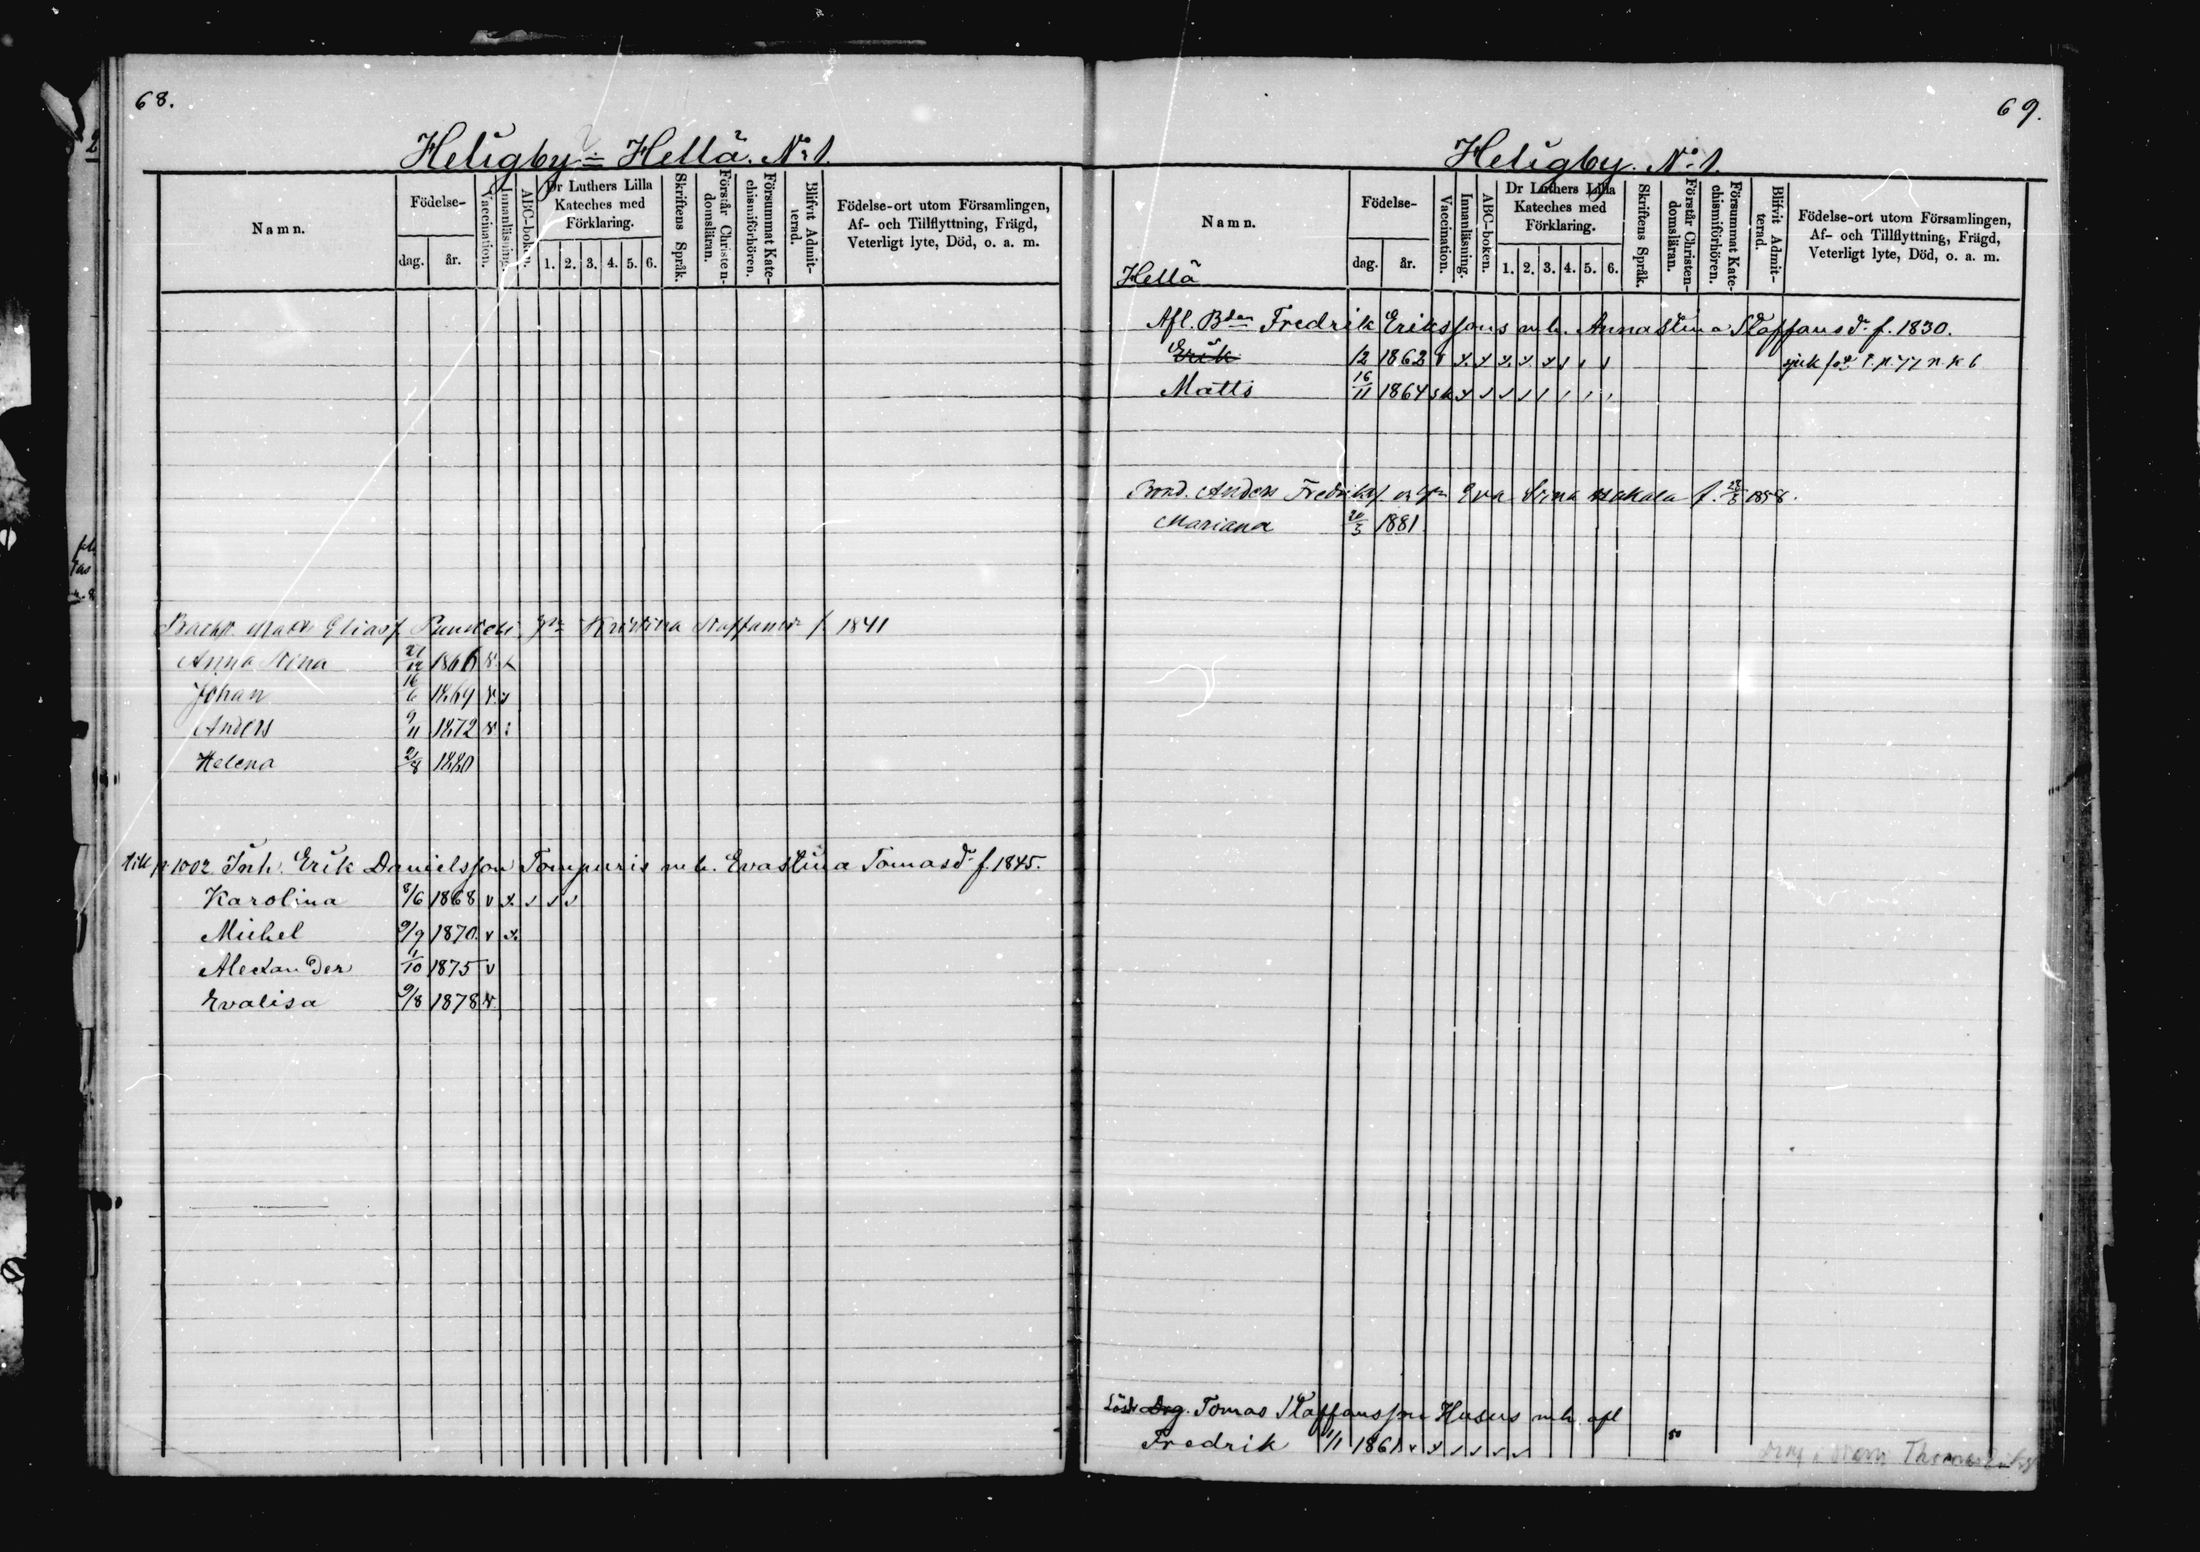 68.
Heligby = Hellä. No 1.
Namn.
Födelse-
dag.
år.
Vaccination.
Innanläsning.
ABC-boken.
Dr Luthers Lilla
Kateches med
Förklaring.
1. 2. 3. 4. 5. 6.
Skriftens Språk.
Förstår Christen-
domsläran.
Försummat Kate-
chismiförhören.
Blifvit Admit-
terad.
Födelse-ort utom Församlingen,
Af- och Tillflyttning, Frägd,
Veterligt lyte, Död, o. a. m.
Matts Eliasf. Kristina Staffansdr f. 1841
Anna Stina 21/12 1866 v x
Johan 16/6 1869 v x
Anders 9/11 1872 v
Helena 21/8 1880
till p 1002 Inh. Erik Danielsson Tompuris m h. Evastina Tomasdr f. 1845.
Karolina 8/6 1868 v x
Michel 9/9 1870 v x
Alexander 1/10 1875 v
Evalisa 9/8 1878 v
69.
Heligby. No 1.
Namn.
Födelse-
dag.
år.
Vaccination.
Innanläsning.
ABC-boken.
Dr Luthers Lilla
Kateches med
Förklaring.
1. 2. 3. 4. 5. 6.
Skriftens Språk.
Förstår Christen-
domsläran.
Försummat Kate-
chismiförhören.
Blifvit Admit-
terad.
Födelse-ort utom Församlingen,
Af- och Tillflyttning, Frägd,
Veterligt lyte, Död, o. a. m.
Hellä
Afl. Bden Fredrik Erikssons m h. Annastina Staffansdr f. 1830.
Erik 12 1862 v x x x x x
Matts 16/11 1864 x
Bond. Anders Fredriksf. Eva Stina f. 1858.
Mariana 20/3 1881
Lösk Drg. Tomas Staffansson Husus m h. afl
Fredrik 1/1 1861 v x